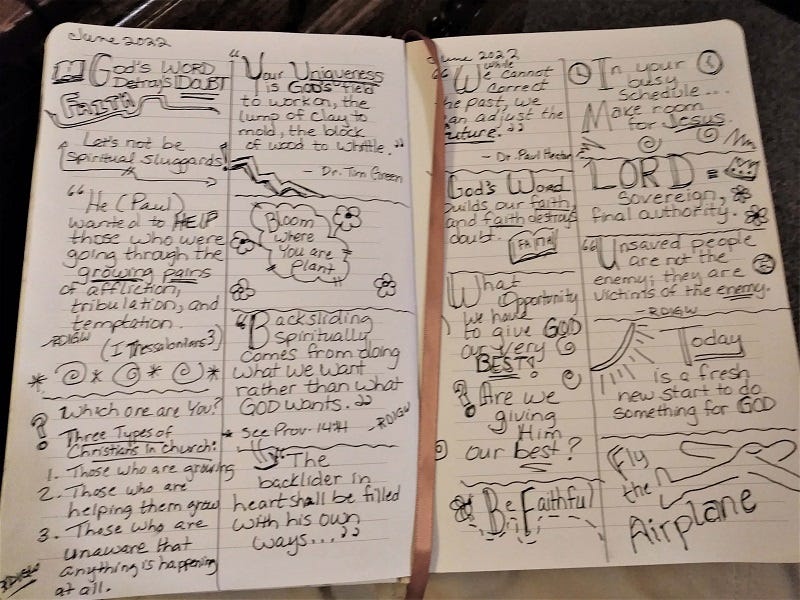 June 2022
God's WORD
Detroys DOUBT
FAITH
Let's not be
Spiritual sluggards!
"He (Paul)
wanted to HELP
those who were
going through the
growing pains
of affliction,
tribulation, and
temptation.
-RDIGW
(I Thessalonians 3)
? Which one are You?
Three Types of
Christians in church:
1. Those who are growing
2. Those who are
helping them grow
3. Those who are
unaware that
anything is happening
at all.
RDIGW
"Your Uniqueness
is GOD's field
to work on, the
lump of clay to
mold, the block
of wood to whittle."
- Dr. Tim Green
Bloom
where
You are
Plant
"Backsliding
Spiritually
comes from doing
what we want
rather than what
GOD wants."
-RDIGW
* See Prov. 14:14
"The
backlider in
heart shall be filled
with his own
ways..."
June 2022
"While
We cannot
correct
the past, we
can adjust the
future."
- Dr. Paul
God's Word
builds our faith,
and faith destroys
doubt.
FAITH
What
Opportunity
we have
to give GOD
our very
BEST!
? Are we
giving
Him
our best?
Be Faithful
In your
busy
schedule...
Make room
for Jesus.
LORD =
Sovereign,
final authority.
"Unsaved people
are not the
enemy; they are
victims of the enemy.
-RDIGW
Today
is a fresh
new start to do
something for GOD
Fly
the
Airplane